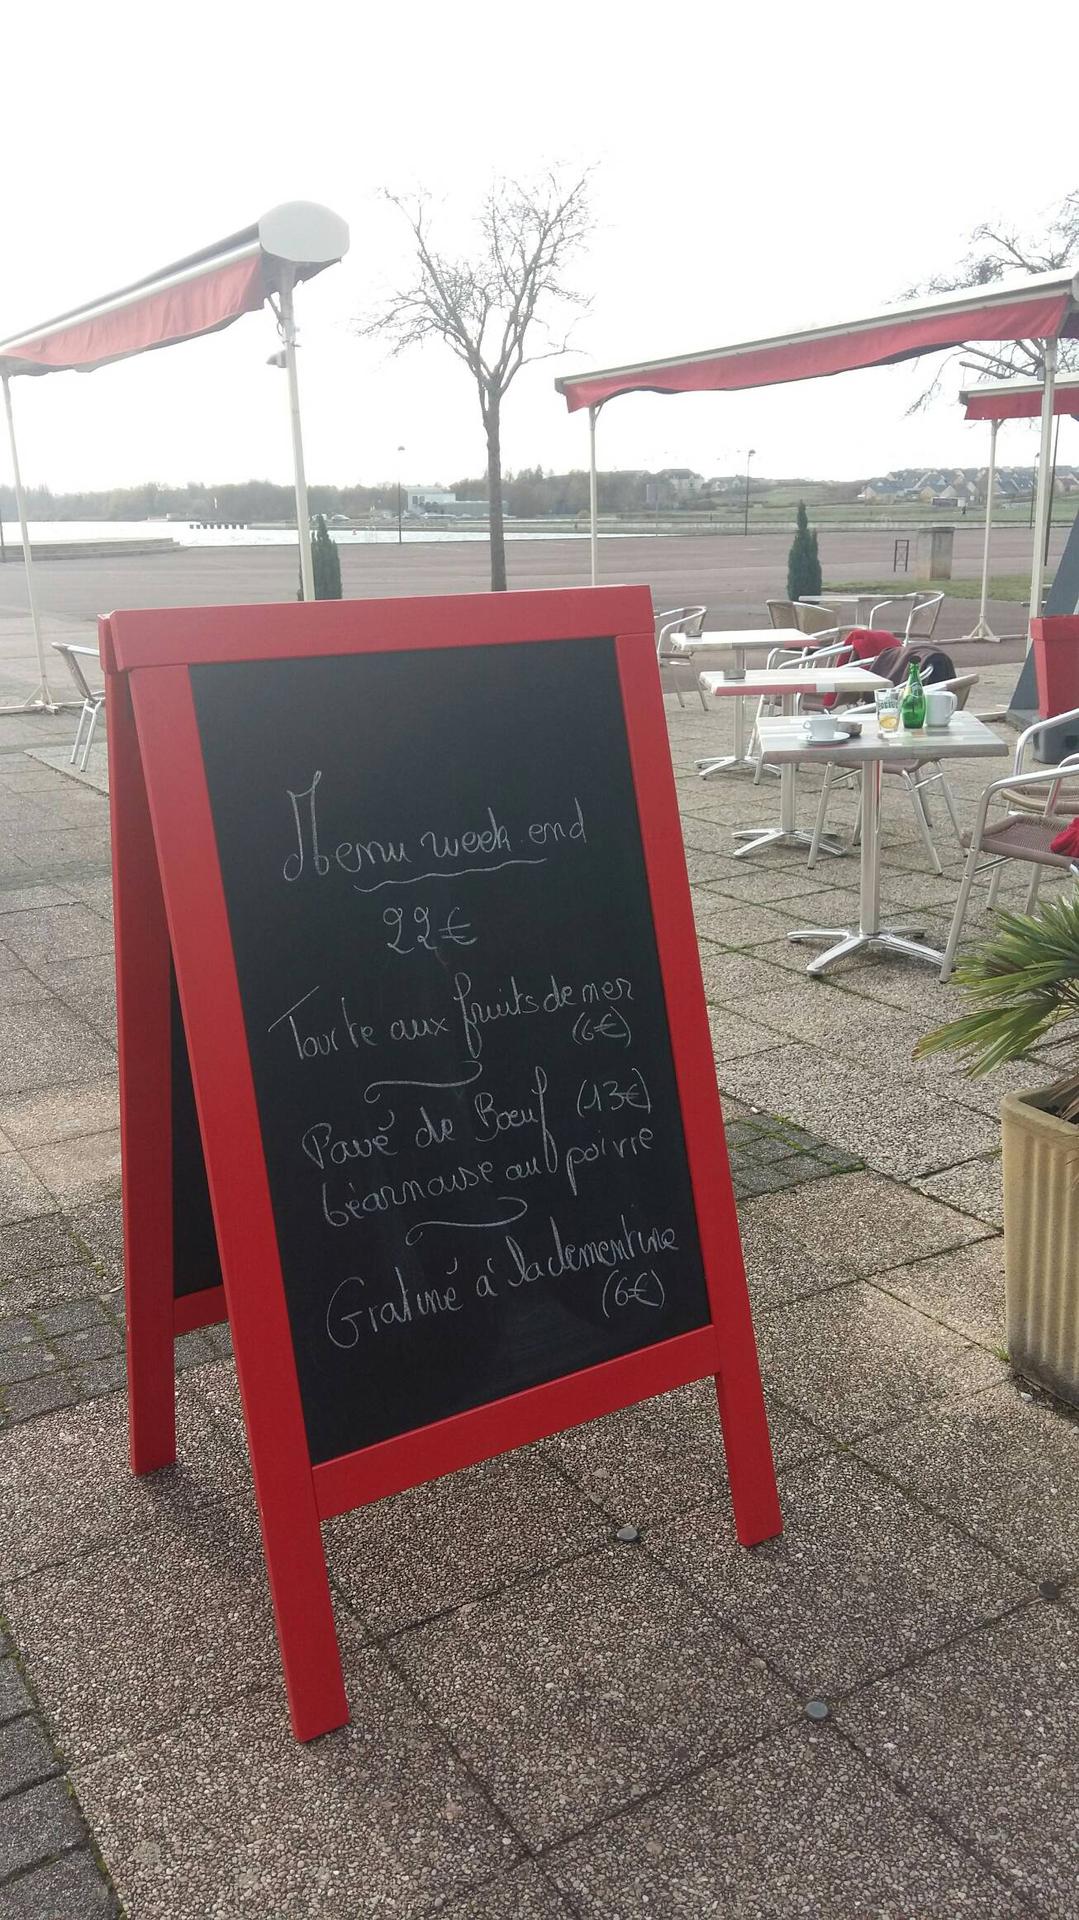 Menu week end
22€
Tourte aux fruits de mer
(6€)
Pavé de Bœuf (13€)
béarnaise au poivre
Gratiné à la clementine
(6€)